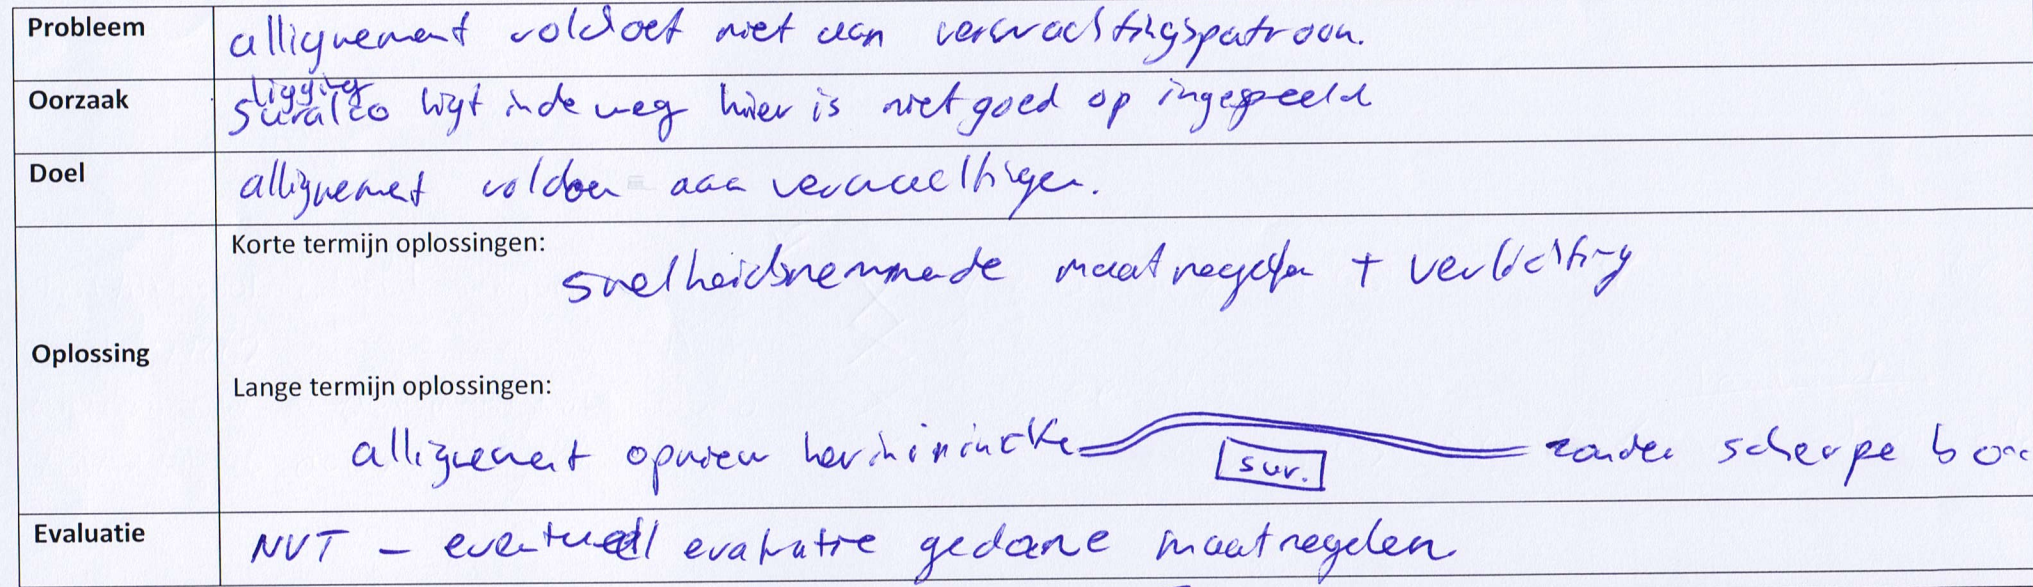 Probleem
allignement voldoet niet aan verwachtingspatroon.
Oorzaak
ligging
Suralco ligt in de weg hier is niet goed op ingespeeld
Doel
allignemet voldoen aan verwachtingen.
Korte termijn oplossingen:
snelheidsremmende maatregelen + verlichting
Oplossing
Lange termijn oplossingen:
allignement opnieuw sur. zonder scherpe
Evaluatie
NVT - eventueel evaluatie gedane maatregelen